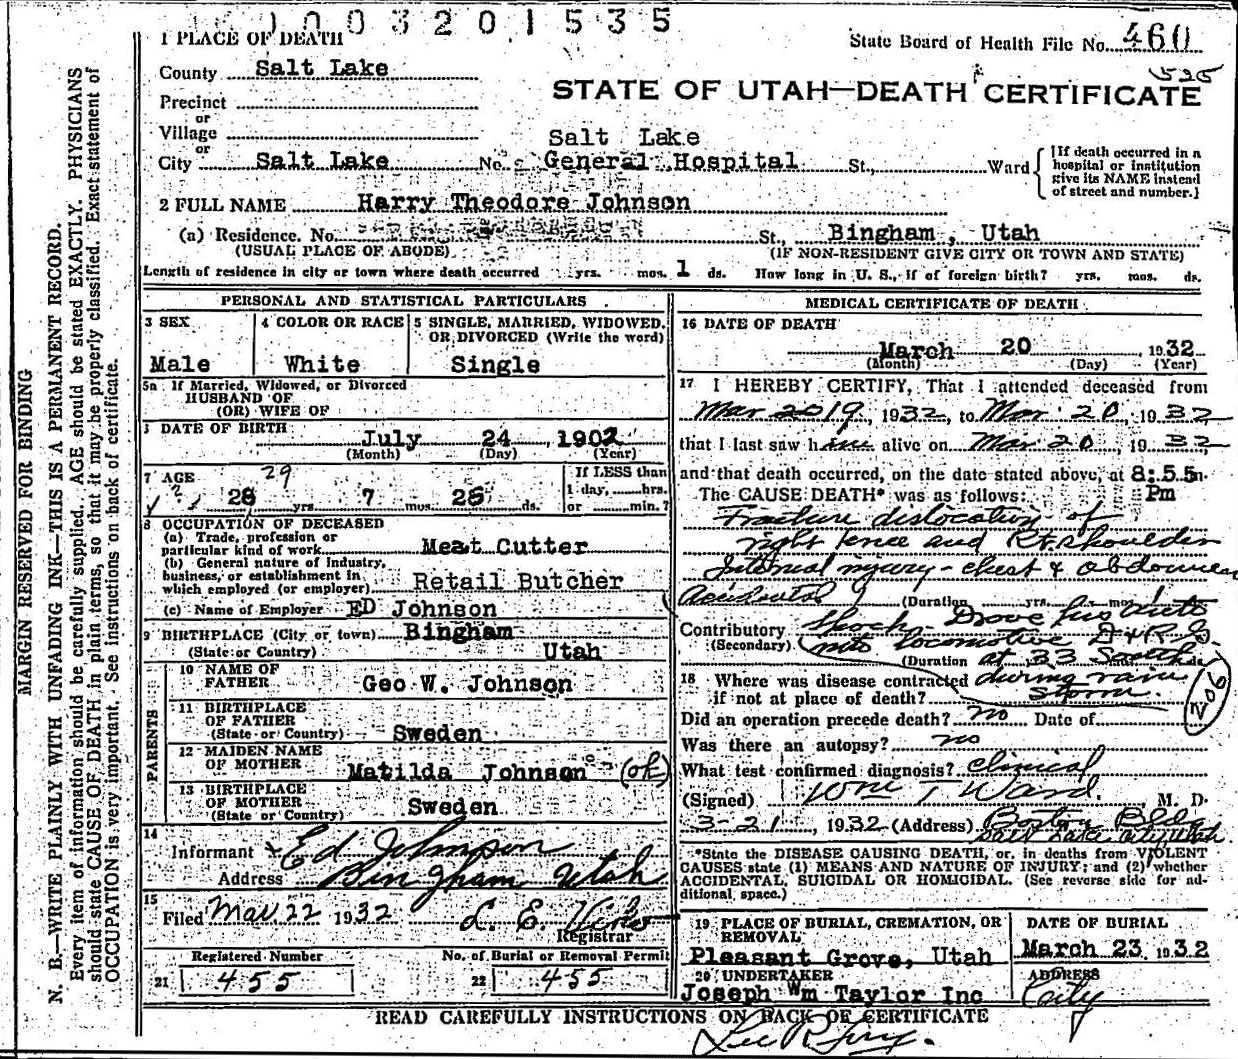 1003201535
1 PLACE OF DEATH
State Board of Health File No. 460
525
County Salt Lake
STATE OF UTAH—DEATH CERTIFICATE
Precinct
or
Village
Salt Lake
or
City Salt Lake No. General Hospital St., Ward
[If death occurred in a hospital or institution give its NAME instead of street and number.]
2 FULL NAME Harry Theodore Johnson
(a) Residence. No. St., Bingham, Utah
(USUAL PLACE OF ABODE) (IF NON-RESIDENT GIVE CITY OR TOWN AND STATE)
Length of residence in city or town where death occurred yrs. mos. 1 ds. How long in U. S., if of foreign birth? yrs. mos. ds.
MARGIN RESERVED FOR BINDING
N. B.—WRITE PLAINLY WITH UNFADING INK—THIS IS A PERMANENT RECORD.
Every item of information should be carefully supplied. AGE should be stated EXACTLY. PHYSICIANS
should state CAUSE OF DEATH in plain terms, so that it may be properly classified. Exact statement of
OCCUPATION is very important. See instructions on back of certificate.
PERSONAL AND STATISTICAL PARTICULARS
3 SEX 4 COLOR OR RACE 5 SINGLE, MARRIED, WIDOWED,
OR DIVORCED (Write the word)
Male White Single
5a If Married, Widowed, or Divorced
HUSBAND OF
(OR) WIFE OF
DATE OF BIRTH
July 24, 1902
(Month) (Day) (Year)
7 AGE 29 If LESS than
28 yrs. 7 mos. 25 ds. 1 day, hrs.
or min.?
8 OCCUPATION OF DECEASED
(a) Trade, profession or
particular kind of work Meat Cutter
(b) General nature of industry,
business, or establishment in
which employed (or employer) Retail Butcher
(c) Name of Employer ED Johnson
9 BIRTHPLACE (City or town) Bingham
(State or Country) Utah
PARENTS
10 NAME OF
FATHER Geo W. Johnson
11 BIRTHPLACE
OF FATHER
(State or Country) Sweden
12 MAIDEN NAME
OF MOTHER Matilda Johnson (ok)
13 BIRTHPLACE
OF MOTHER
(State or Country) Sweden
14
Informant Ed Johnson
Address Bingham, Utah
15
Filed Mar 22 1932 L. E.
Registrar
Registered Number No. of Burial or Removal Permit
21 455 22 455
MEDICAL CERTIFICATE OF DEATH
16 DATE OF DEATH
March 20, 1932
(Month) (Day) (Year)
17 I HEREBY CERTIFY, That I attended deceased from
Mar 2019, 1932, to Mar. 20, 1932
that I last saw him alive on Mar. 20, 1932,
and that death occurred, on the date stated above, at 8:55m
The CAUSE DEATH* was as follows: Pm
Fracture dislocation of
right knee and Rt. shoulder
Internal injury - chest & abdomen
Accidental (Duration yrs. mos.
Contributory Shock - Drove his auto
(Secondary) into locomotive D & R G
(Duration at 33 South ds.
18 Where was disease contracted during rain
if not at place of death? storm.
206
Did an operation precede death? no Date of
Was there an autopsy? no
What test confirmed diagnosis? Clinical
(Signed) Wm T Ward. M. D.
3-21, 1932 (Address) Boston Bldg
Salt Lake City Utah
*State the DISEASE CAUSING DEATH, or, in deaths from VIOLENT
CAUSES state (1) MEANS AND NATURE OF INJURY; and (2) whether
ACCIDENTAL, SUICIDAL OR HOMICIDAL. (See reverse side for ad-
ditional space.)
19 PLACE OF BURIAL, CREMATION, OR
REMOVAL
Pleasant Grove, Utah
DATE OF BURIAL
March 23, 1932
20 UNDERTAKER
Joseph Wm Taylor Inc
ADDRESS
City
READ CAREFULLY INSTRUCTIONS ON BACK OF CERTIFICATE